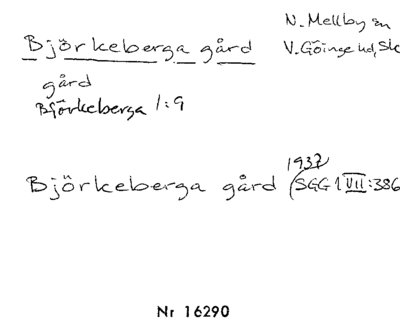 Björkeberga gård
N. Mellby sn
V. Göinge hd, Sk
gård
Björkeberga 1:9
Björkeberga gård 1937 (SGG 1 VII:386
Nr 16290